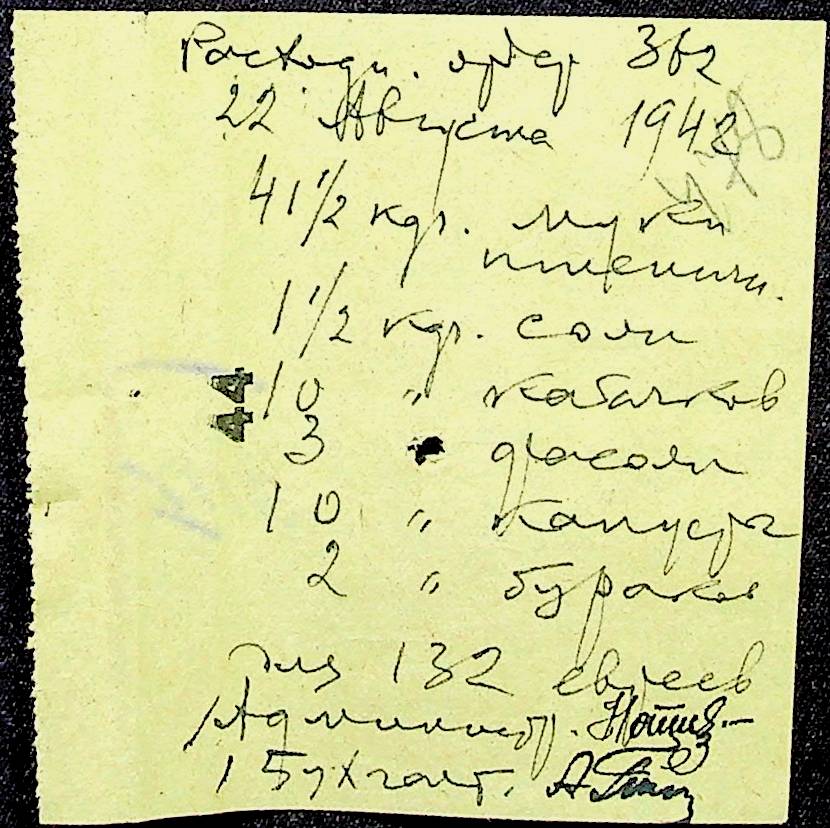 Расходн. ордер 362
22 Августа 1942
41 1/2 кгр. муки
пшеничн.
1 1/2 кгр. соли
10 " кабачков
44
3 " фасоли
10 " капусты
2 " бураков
для 132 евреев
Администр.
Бухгалт.